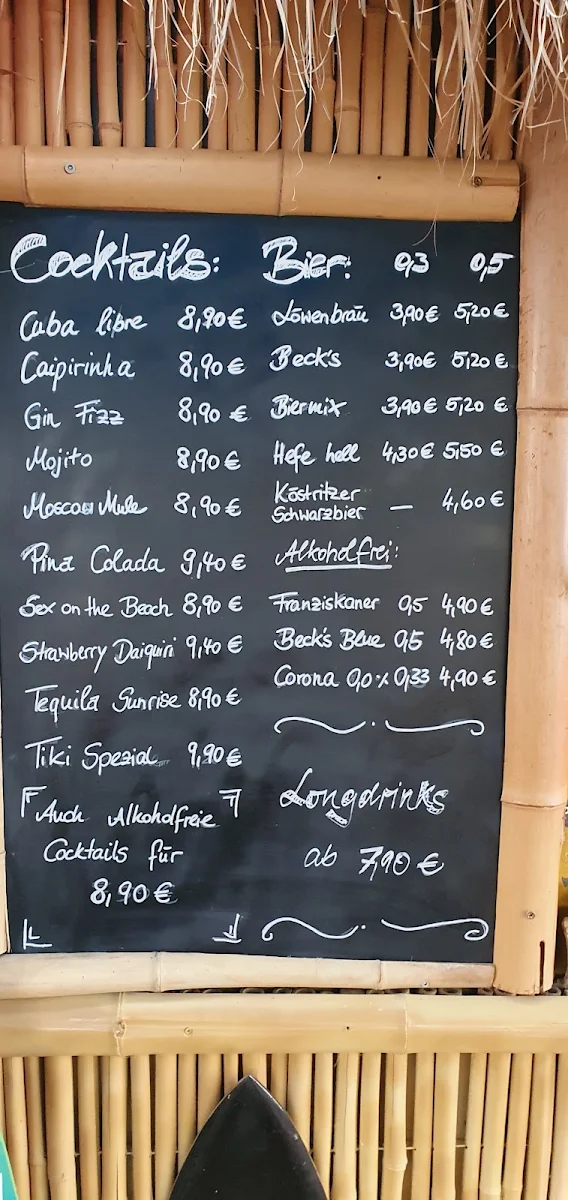 Cocktails:
Cuba libre 8,90 €
Caipirinha 8,90 €
Gin Fizz 8,90 €
Mojito 8,90 €
Moscow Mule 8,90 €
Pina Colada 9,40 €
Sex on the Beach 8,90 €
Strawberry Daiquiri 9,40 €
Tequila Sunrise 8,90 €
Tiki Spezial 9,90 €
Auch Alkoholfreie
Cocktails für
8,90 €
Bier: 0,3 0,5
Löwenbräu 3,90 € 5,20 €
Beck's 3,90 € 5,20 €
Biermix 3,90 € 5,20 €
Hefe hell 4,30 € 5,50 €
Köstritzer
Schwarzbier — 4,60 €
Alkoholfrei:
Franziskaner 0,5 4,90 €
Beck's Blue 0,5 4,80 €
Corona 0,0% 0,33 4,90 €
Longdrinks
ab 7,90 €